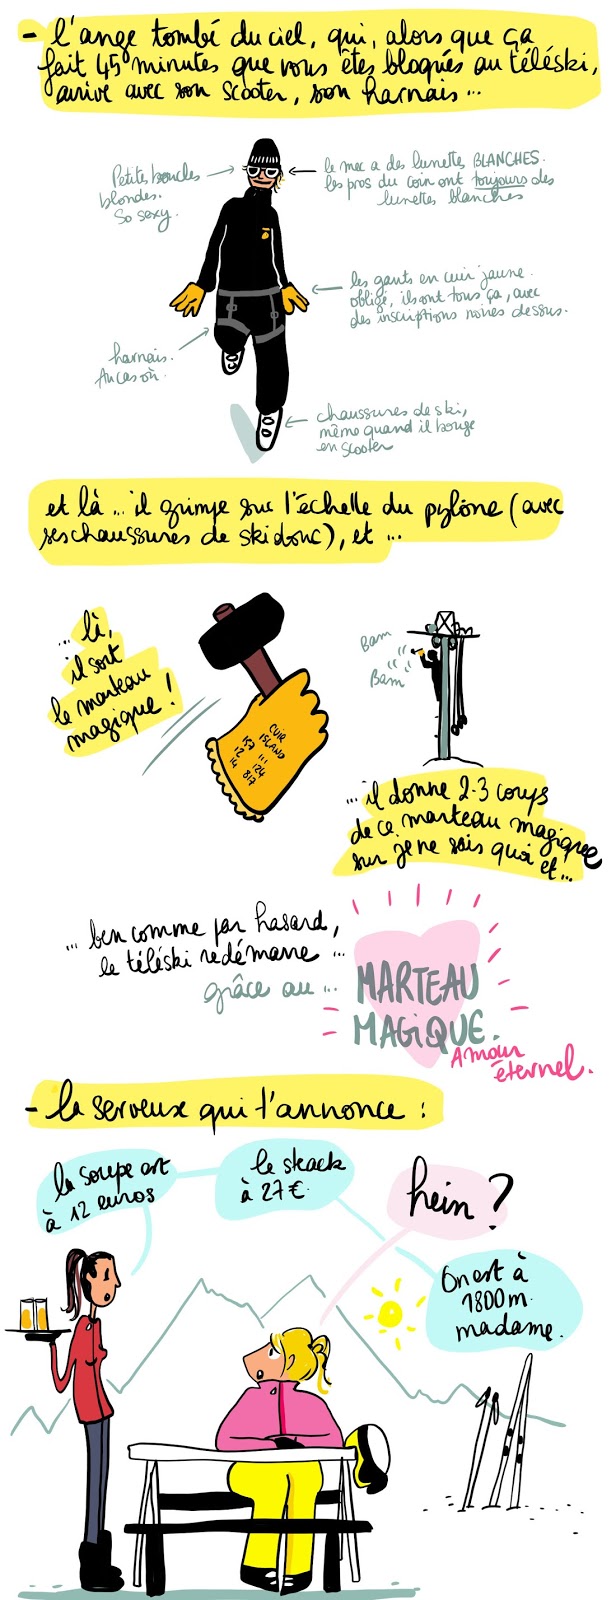 - l'ange tombé du ciel, qui, alors que ça
fait 45 minutes que vous êtes bloqués au téléski,
arrive avec son scooter, son harnais...
Petites boucles
blondes.
So sexy.
le mec a des lunettes BLANCHES.
les pros du coin ont toujours des
lunettes blanches
les gants en cuir jaune.
obligé, ils ont tous ça, avec
des inscriptions noires dessus.
harnais.
Au cas où.
chaussures de ski,
même quand il bouge
en scooter
et là... il grimpe sur l'échelle du pylône (avec
ses chaussures de ski donc), et ...
... là,
il sort
le marteau
magique !
CUIR
ISLAND
157 111
12 124
14 817
Bam
Bam
... il donne 2-3 coups
de ce marteau magique
sur je ne sais quoi et...
... ben comme par hasard,
le téléski redémarre ...
grâce au ...
MARTEAU
MAGIQUE.
Amour
éternel.
- la serveuse qui t'annonce :
la soupe est
à 12 euros
le steack
à 27€.
hein ?
On est à
1800m.
madame.